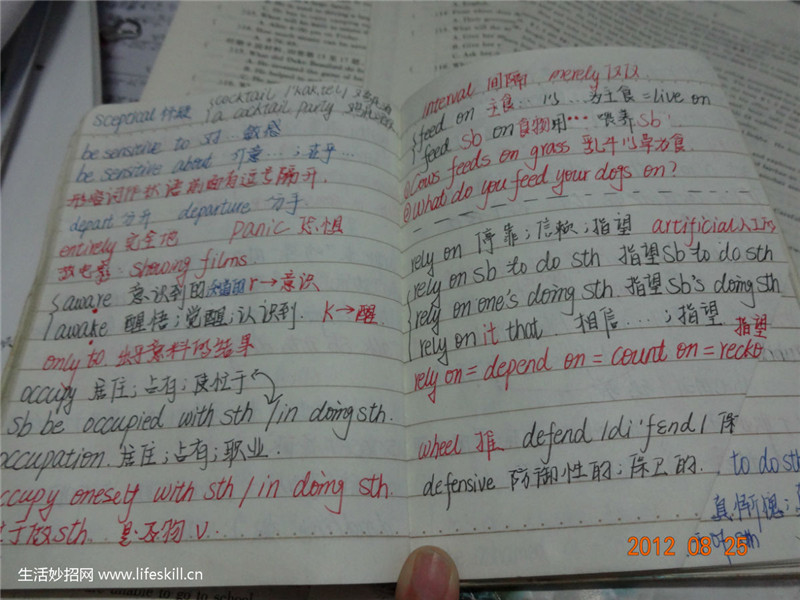 sceptical 怀疑 cocktail /'kɔktel/
a cocktail party
be sensitive to 对…敏感
be sensitive about 介意…；在乎…
形容词作状语前面有逗号隔开.
depart 分开 departure 分手
entirely 完全地 panic 恐惧
放电影: showing films
aware 意识到的 r→意识
awake 醒悟；觉醒；认识到. k→醒.
only to 出乎意料的结果
occupy 居住；占有；使忙于
sb be occupied with sth / in doing sth.
occupation. 居住；占有；职业.
occupy oneself with sth / in doing sth.
于做sth. 是及物 v
interval 间隔 merely 仅仅
feed on 主食.. 以…为主食=live on
feed sb on 食物 用… 喂养sb
①Cows feeds on grass 乳牛以草为食.
②What do you feed your dogs on?
rely on 停靠；信赖；指望 artificial 人工的
rely on sb to do sth 指望sb to do sth
rely on one's doing sth. 指望sb's doing sth
rely on it that 相信…；指望
指望
rely on = depend on = count on = recko
wheel 推 defend /di'fend/ 保
defensive 防御性的；保卫的. to do sth
真惭愧；
2012 08 25
生活妙招网 www.lifeskill.cn
unable to go to school